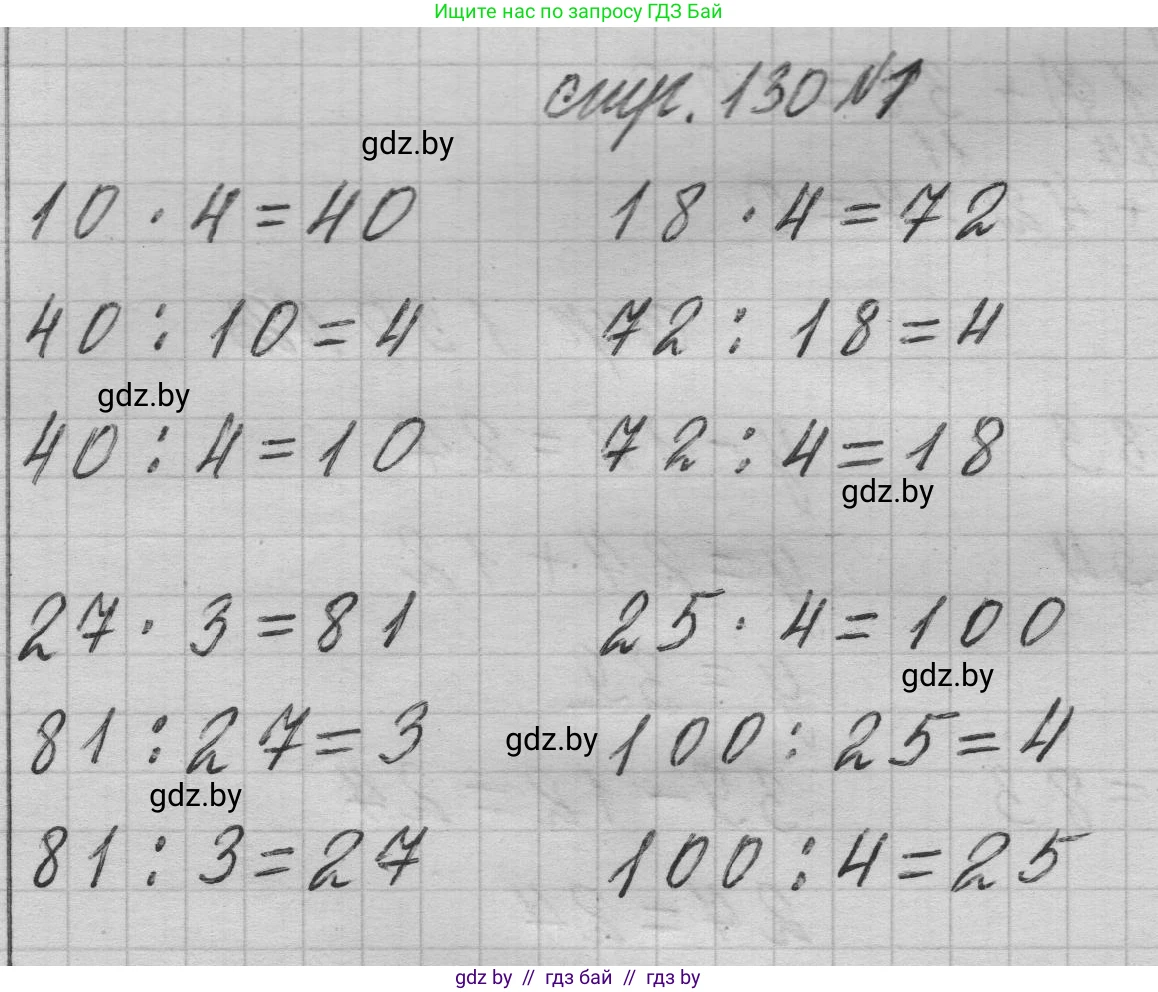 Ищите нас по запросу ГДЗ Бай
стр. 130 №1
gdz.by
10 · 4 = 40 18 · 4 = 72
40 : 10 = 4 72 : 18 = 4
gdz.by
40 : 4 = 10 72 : 4 = 18
gdz.by
27 · 3 = 81 25 · 4 = 100
gdz.by
81 : 27 = 3 gdz.by 100 : 25 = 4
gdz.by
81 : 3 = 27 100 : 4 = 25
gdz by // гдз бай // гдз by